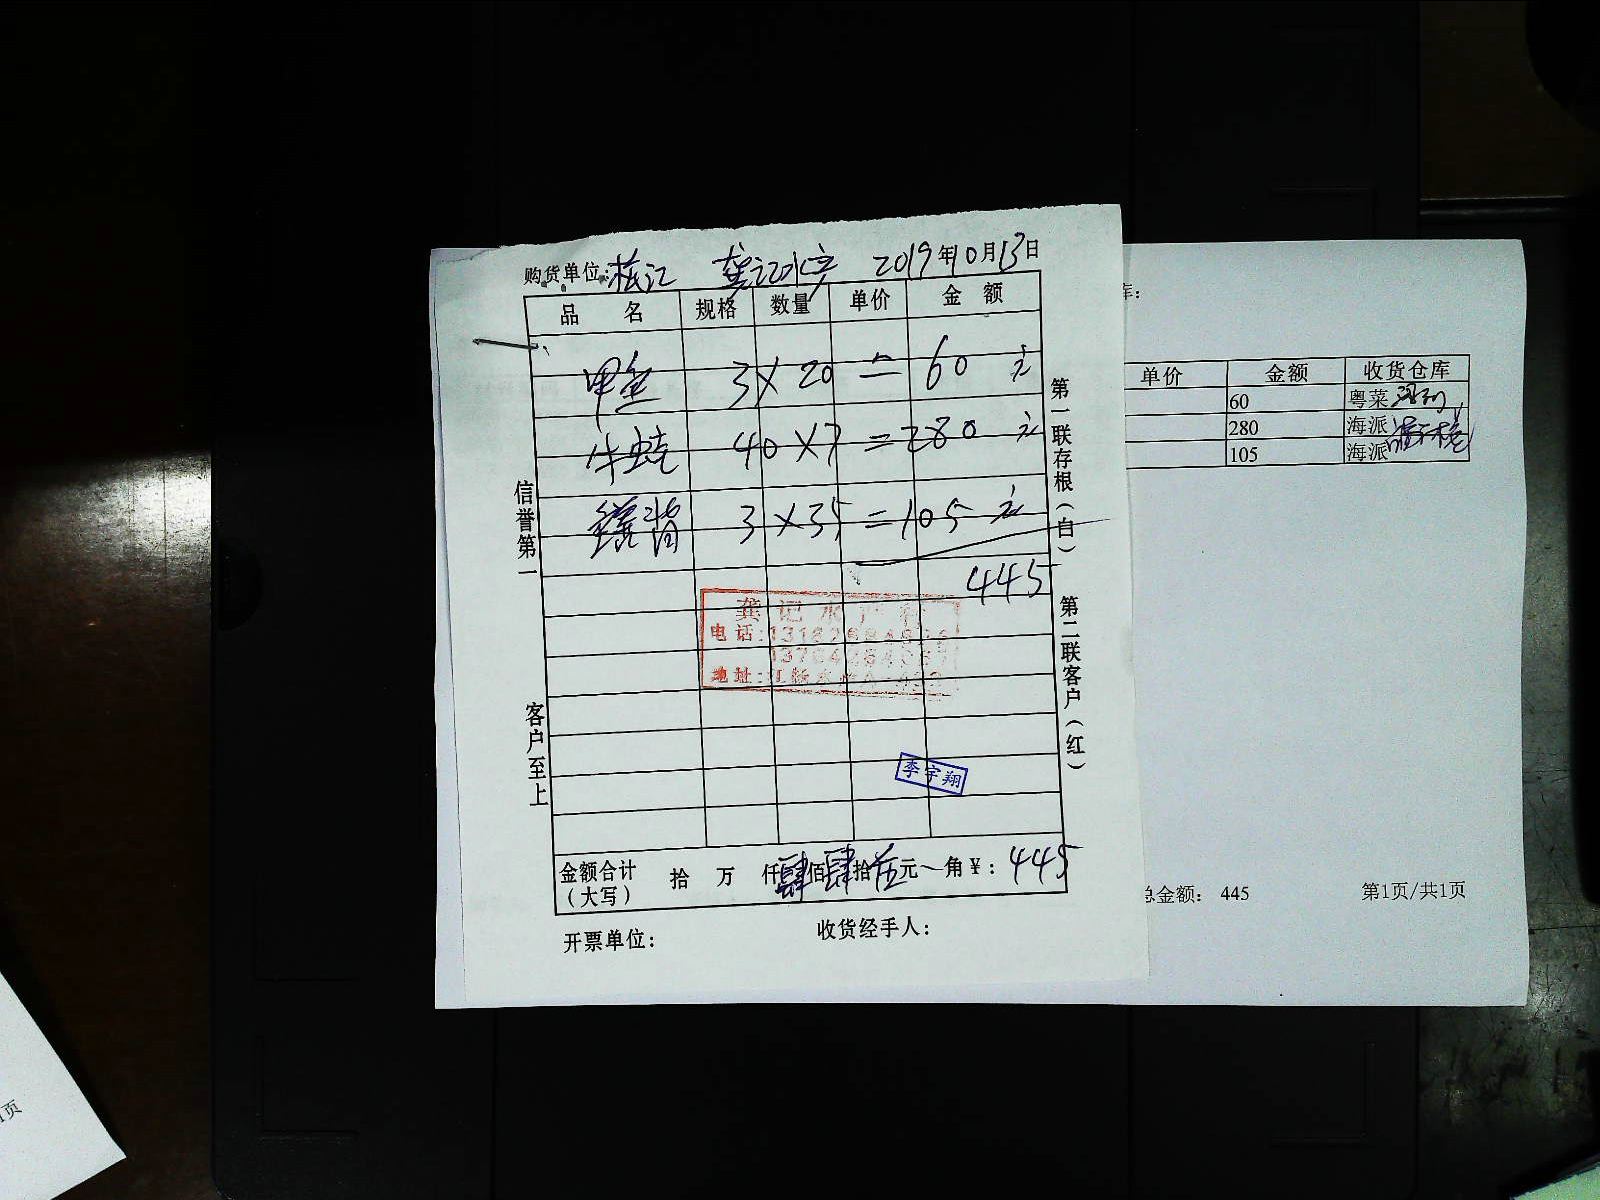 购货单位: 龚记水产 2019年10月13日
品 名 规格 数量 单价 金 额
甲鱼 3×20=60元
牛蛙 40×7=280元
3×35=105元
445
龚记水产行
电话:
地址:
李宇翔
金额合计(大写) 拾 万 仟肆佰肆拾伍元一角¥:445
开票单位: 收货经手人:
信誉第一
客户至上
第一联存根(白)
第二联客户(红)
库:
单价 金额 收货仓库
60 粤菜
280 海派
105 海派
总金额: 445 第1页/共1页
页